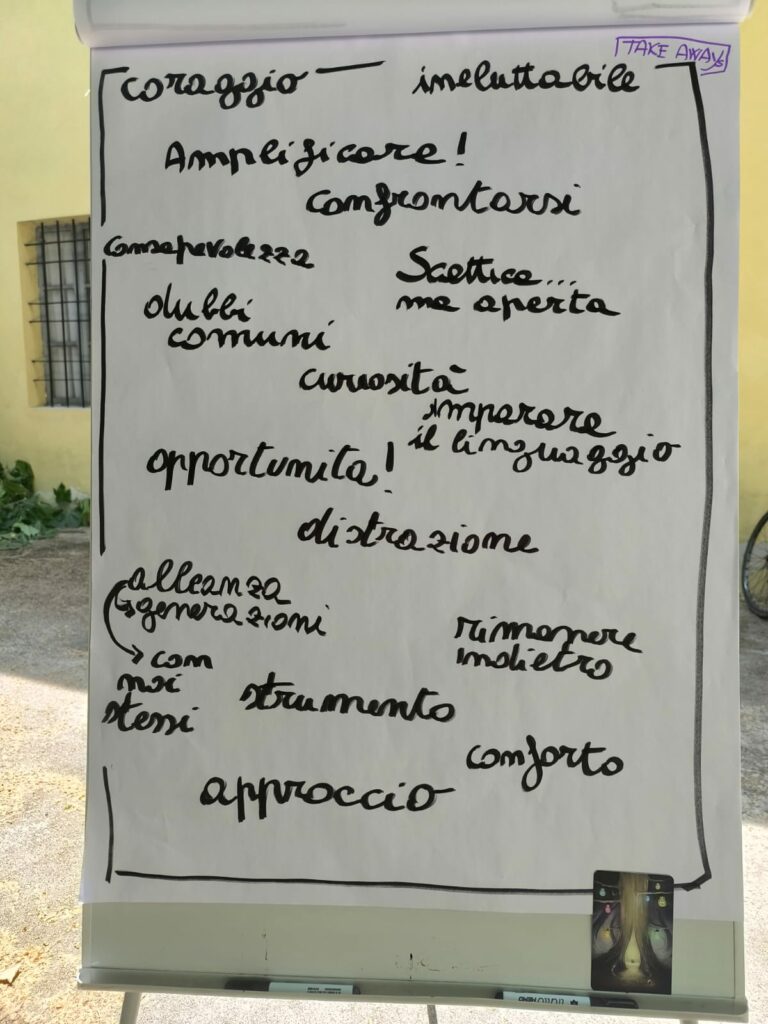 TAKE AWAYs
coraggio
ineluttabile
Amplificare!
confrontarsi
consapevolezza
Scettica...
ma aperta
dubbi
comuni
curiosità
imparare
il linguaggio
opportunita!
distrazione
alleanza
generazioni
con
noi
stessi
rimanere
indietro
strumento
conforto
approccio